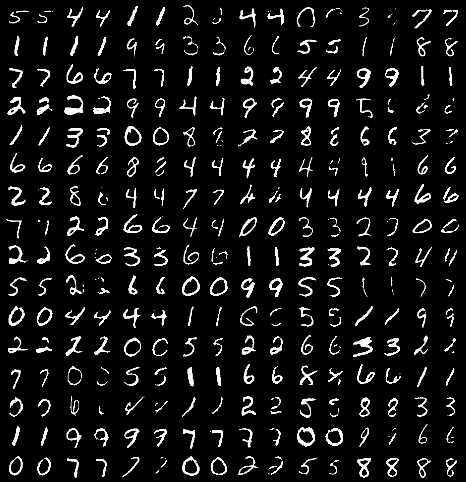 5 5 4 4 1 1 2 2 4 4 0 0 3 3 7 7
1 1 1 1 9 9 3 3 6 6 5 5 1 1 8 8
7 7 6 6 7 7 1 1 2 2 4 4 9 9 1 1
2 2 2 2 9 9 4 4 9 9 9 9 5 6 6
1 1 3 3 0 0 8 8 2 2 8 8 6 6 3 3
6 6 6 6 8 8 4 4 4 4 4 4 9 6 6
2 2 8 8 4 4 7 7 4 4 4 4 4 4 6 6
7 7 2 2 6 6 4 4 0 0 3 3 2 2 0 0
2 2 6 6 3 3 6 6 1 1 3 3 2 2 4 4
5 5 2 2 6 6 0 0 9 9 5 5 1 1 7 7
0 0 4 4 4 4 1 1 6 5 5 1 1 9 9
2 2 2 2 0 0 5 5 2 2 6 6 3 3 2 2
7 7 0 0 5 5 1 1 6 6 8 8 6 6 1 1
0 0 6 1 1 2 2 5 5 8 8 3 3
1 1 9 9 9 9 7 7 7 7 0 0 9 9 6 6
0 0 7 7 7 7 0 0 2 2 5 5 8 8 8 8